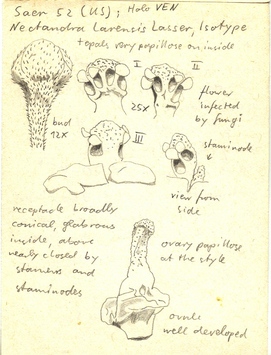 Saer 52 (US); Holo VEN
Nectandra Larensis Lasser, Isotype
tepals very papillose on inside
I
II
bud
12x
25x
flower
infected
by fungi
III
staminode
view from
side
receptacle broadly
conical, glabrous
inside, above
nearly closed by
stamens and
staminodes
ovary papillose
at the style
ovule
well developed